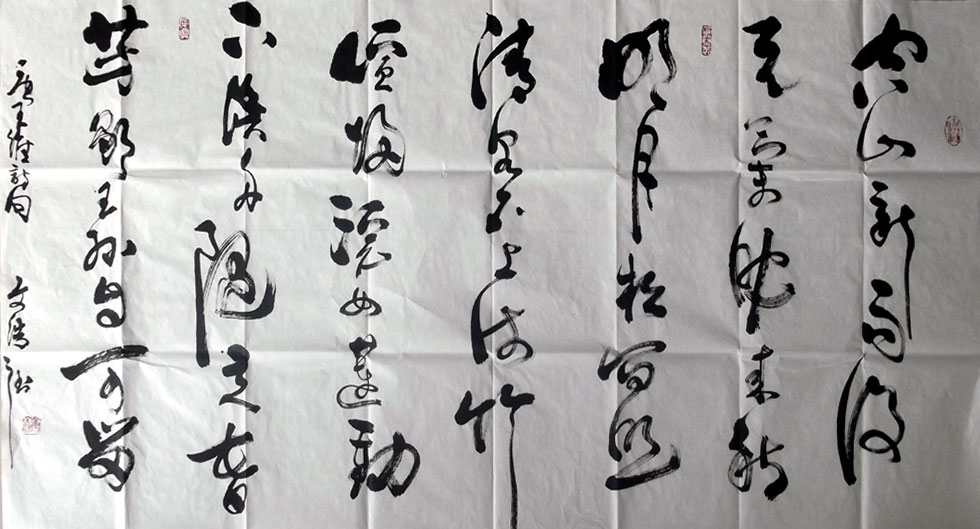 空山新雨後
天氣晚來秋
明月松間照
清泉石上流竹
喧歸浣女蓮動
下漁舟隨意春
芳歇王孫自可留
唐王維詩句 文浩書